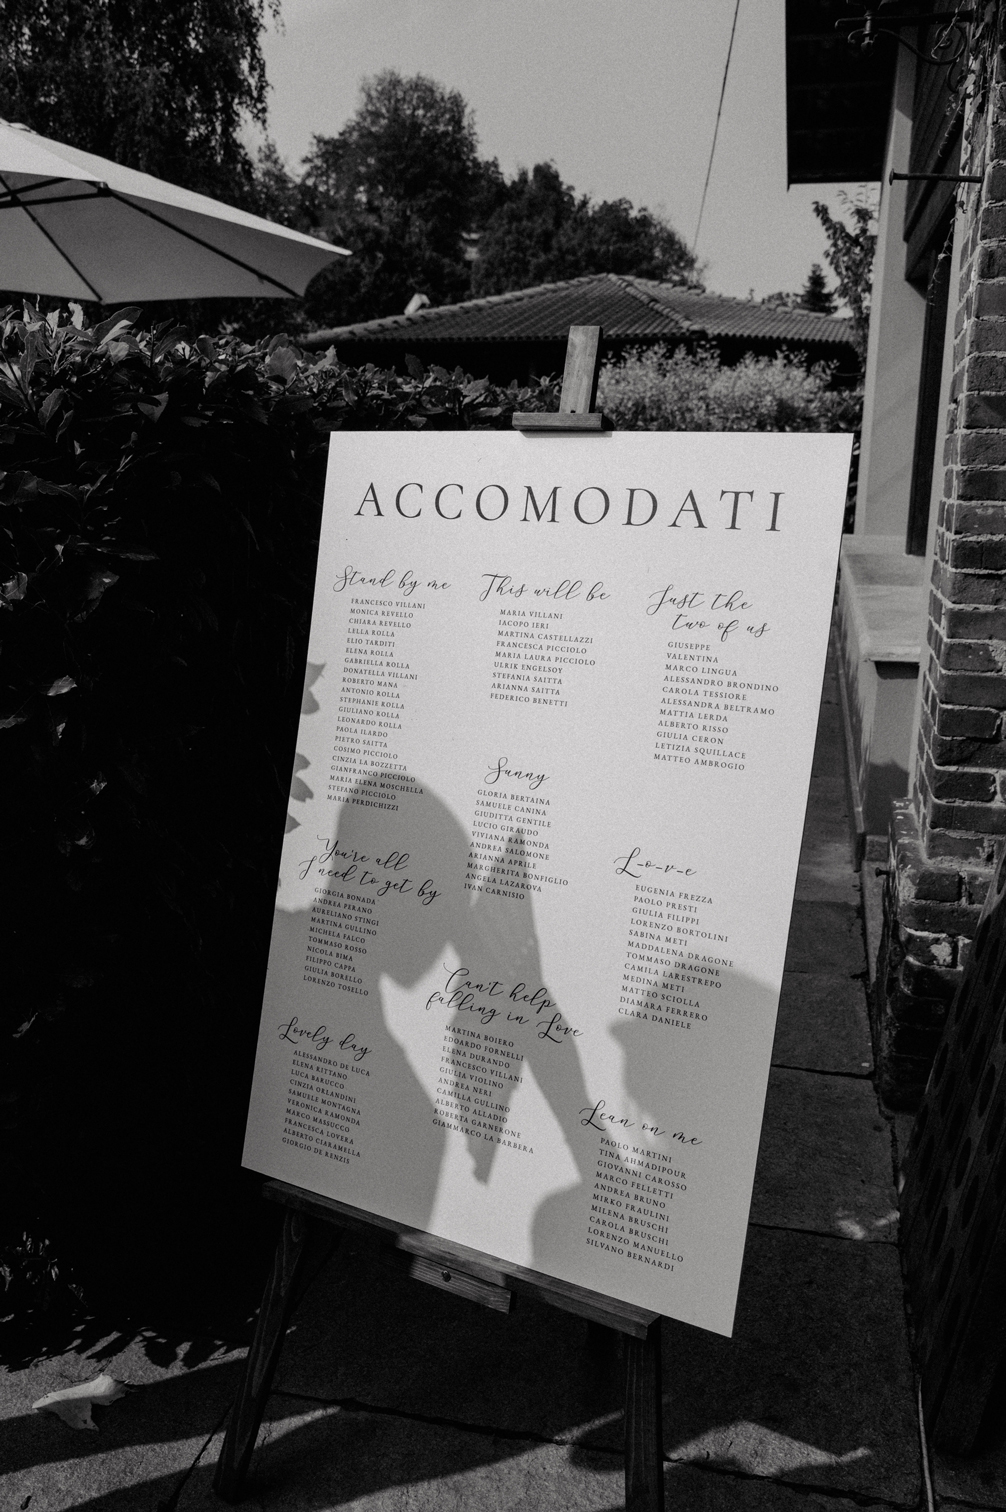 ACCOMODATI
Stand by me
FRANCESCO VILLANI
MONICA REVELLO
CHIARA REVELLO
LELLA ROLLA
ELIO TARDITI
ELENA ROLLA
GABRIELLA ROLLA
DONATELLA VILLANI
ROBERTO MANA
ANTONIO ROLLA
STEPHANIE ROLLA
GIULIANO ROLLA
LEONARDO ROLLA
PAOLA ILARDO
PIETRO SAITTA
COSIMO PICCIOLO
CINZIA LA BOZZETTA
GIANFRANCO PICCIOLO
MARIA ELENA MOSCHELLA
STEFANO PICCIOLO
MARIA PERDICHIZZI
You're all
I need to get by
GIORGIA BONADA
ANDREA PERANO
AURELIANO STINGI
MARTINA GULLINO
MICHELA FALCO
TOMMASO ROSSO
NICOLA RIMA
FILIPPO CAPPA
GIULIA BORELLO
LORENZO TOSELLO
Lovely day
ALESSANDRO DE LUCA
ELENA RITTANO
LUCA BARUCCO
CINZIA ORLANDINI
SAMUELE MONTAGNA
VERONICA RAMONDA
MARCO MASSUCCO
FRANCESCA LOVERA
ALBERTO CIARAMELLA
GIORGIO DE RENZIS
This will be
MARIA VILLANI
IACOPO IERI
MARTINA CASTELLAZZI
FRANCESCA PICCIOLO
MARIA LAURA PICCIOLO
ULRIK ENGELSOY
STEFANIA SAITTA
ARIANNA SAITTA
FEDERICO BENETTI
Sunny
GLORIA BERTAINA
SAMUELE CANINA
GIUDITTA GENTILE
LUCIO GIRAUDO
VIVIANA RAMONDA
ANDREA SALOMONE
ARIANNA APRILE
MARGHERITA BONFIGLIO
ANGELA LAZAROVA
IVAN CARNISIO
Can't help
falling in Love
MARTINA BOIERO
EDOARDO FORNELLI
ELENA DURANDO
FRANCESCO VILLANI
GIULIA VIOLINO
ANDREA NERI
CAMILLA GULLINO
ALBERTO ALLADIO
ROBERTA GARNERONE
GIAMMARCO LA BARBERA
Just the
two of us
GIUSEPPE
VALENTINA
MARCO LINGUA
ALESSANDRO BRONDINO
CAROLA TESSIORE
ALESSANDRA BELTRAMO
MATTIA LERDA
ALBERTO RISSO
GIULIA CERON
LETIZIA SQUILLACE
MATTEO AMBROGIO
L-o-v-e
EUGENIA FREZZA
PAOLO PRESTI
GIULIA FILIPPI
LORENZO BORTOLINI
SABINA METI
MADDALENA DRAGONE
TOMMASO DRAGONE
CAMILA LARESTREPO
MEDINA METI
MATTEO SCIOLLA
DIAMARA FERRERO
CLARA DANIELE
Lean on me
PAOLO MARTINI
TINA AHMADIPOUR
GIOVANNI CAROSSO
MARCO FELLETTI
ANDREA BRUNO
MIRKO FRAULINI
MILENA BRUSCHI
CAROLA BRUSCHI
LORENZO MANUELLO
SILVANO BERNARDI